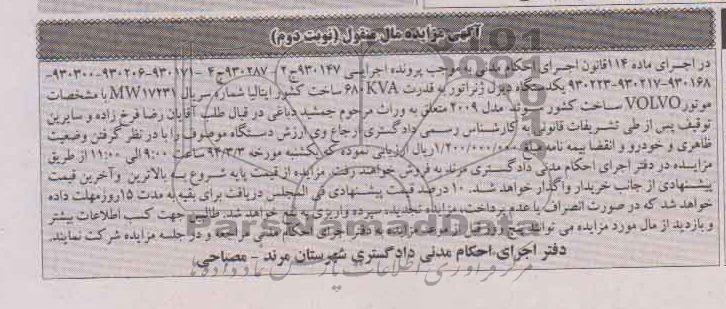 آگهی مزایده مال منقول (نوبت دوم)
در اجرای ماده ۱۱۴ قانون اجرای احکام مدنی به موجب پرونده اجرایی ۹۳۰۱۴۷ج۲ - ۹۳۰۲۸۷ج۴ - ۹۳۰۱۷۱-۹۳۰۲۰۶-۹۳۰۳۰۰-
۹۳۰۱۶۸-۹۳۰۲۱۷-۹۳۰۲۲۳ یکدستگاه دیزل ژنراتور به قدرت ۶۸۰KVA ساخت کشور ایتالیا شماره سریال MW۱۷۲۳۱ با مشخصات
موتور VOLVO ساخت کشور سوئد مدل ۲۰۰۹ متعلق به وراث مرحوم جمشید دباغی در قبال طلب آقایان رضا فرخ زاده و سایرین
توقیف پس از طی تشریفات قانونی به کارشناس رسمی دادگستری ارجاع وی ارزش دستگاه موصوف را با در نظر گرفتن وضعیت
ظاهری و خودرو و انقضا بیمه نامه مبلغ ۱/۲۰۰/۰۰۰/۰۰۰ ریال ارزیابی نموده که یکشنبه مورخه ۹۴/۳/۳ ساعت ۹:۰۰ الی ۱۱:۰۰ از طریق
مزایده در دفتر اجرای احکام مدنی دادگستری مرند به فروش خواهند رفت. مزایده از قیمت پایه شروع به بالاترین و آخرین قیمت
پیشنهادی از جانب خریدار واگذار خواهد شد. ۱۰ درصد قیمت پیشنهادی فی المجلس دریافت برای بقیه به مدت ۱۵ روز مهلت داده
خواهد شد که در صورت انصراف یا عدم پرداخت، مزایده تجدید، سپرده واریزی ضبط خواهد شد. طالبین جهت کسب اطلاعات بیشتر
و بازدید از مال مورد مزایده می توانند پنج روز قبل از موعد مزایده به دفتر اجرای احکام مدنی مراجعه و در جلسه مزایده شرکت نمایند.
دفتر اجرای احکام مدنی دادگستری شهرستان مرند - مصباحی
ParsNamadData